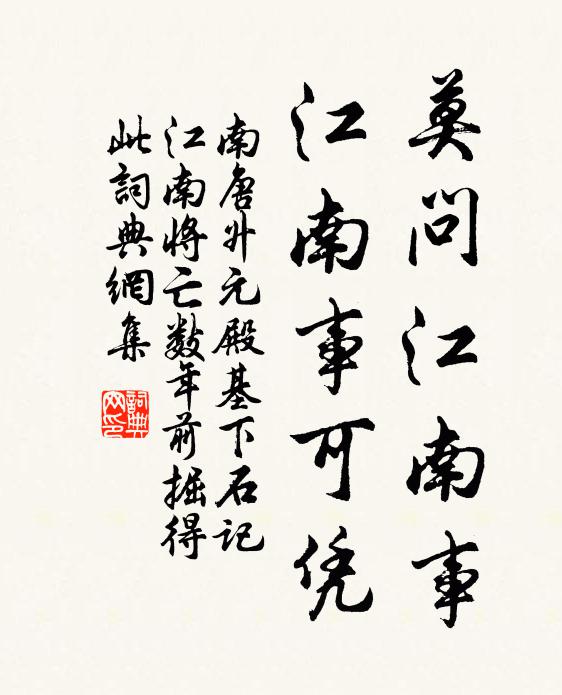 莫问江南事
江南事可凭
南唐升元殿基下石记
江南将亡数年前掘得
此詞典網集
詞典网印